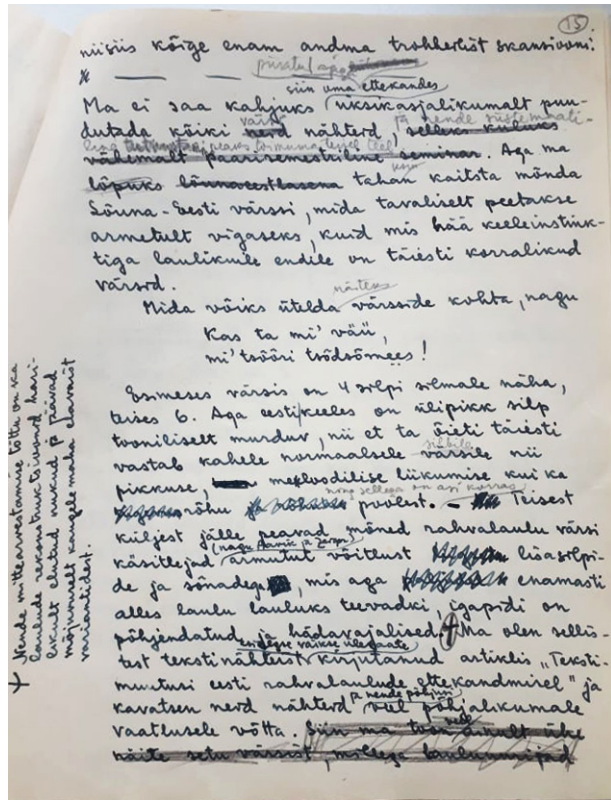 15
niisiis kõige enam andma trohheilist skansiooni.
siin oma ettekandes
Ma ei saa kahjuks üksikasjalikumalt puu-
dutada kõiki neid nähteid, selleks kuluks
vähemalt paarisemestriline seminar. Aga ma
lõpuks lõunaeestlasena tahan kaitsta mõnda
Lõuna-Eesti värssi, mida tavaliselt peetakse
armetult vigaseks, kuid mis hää keeleinstink-
tiga laulikuile endile on täiesti korralikud
värsid.
näiteks
Mida võiks ütelda värsside kohta, nagu
Kas ta mi' väü,
mi' tsõõri tsõdsõmees!
Esimeses värsis on 4 silpi silmale näha,
teises 6. Aga eesti keeles on ülipikk silp
tooniliselt murduv, nii et ta õieti täiesti
silbile
vastab kahele normaalsele värsile nii
pikkuse, meloodilise liikumise kui ka
ning sellega on asi korras
rõhu poolest. – Teisest
küljest jälle peavad mõned rahvalaulu värsi
(nagu Aavik ja
käsitlejad armutut võitlust lisasilpi-
de ja sõnadega, mis aga enamasti
alles laulu lauluks teevadki, igapidi on
põhjendatud ja hädavajalised. † Ma olen sellis-
esialgse väikse ülevaate
test tekstinähteist kirjutanud artiklis „Teksti-
muutusi eesti rahvalaulude ettekandmisel" ja
ja nende põhjusi
kavatsen neid nähteid veel põhjalikumale
veel
vaatlusele võtta. Siin ma toon ainult ühe
näite setu värsist, millega lauluuurijad
† Nende mittearvestamise tõttu on ka
laulude rekonstruktsioonid hari-
likult elutud nukud ja jäävad
mõjuvuselt kaugele maha elavaist
variantidest.